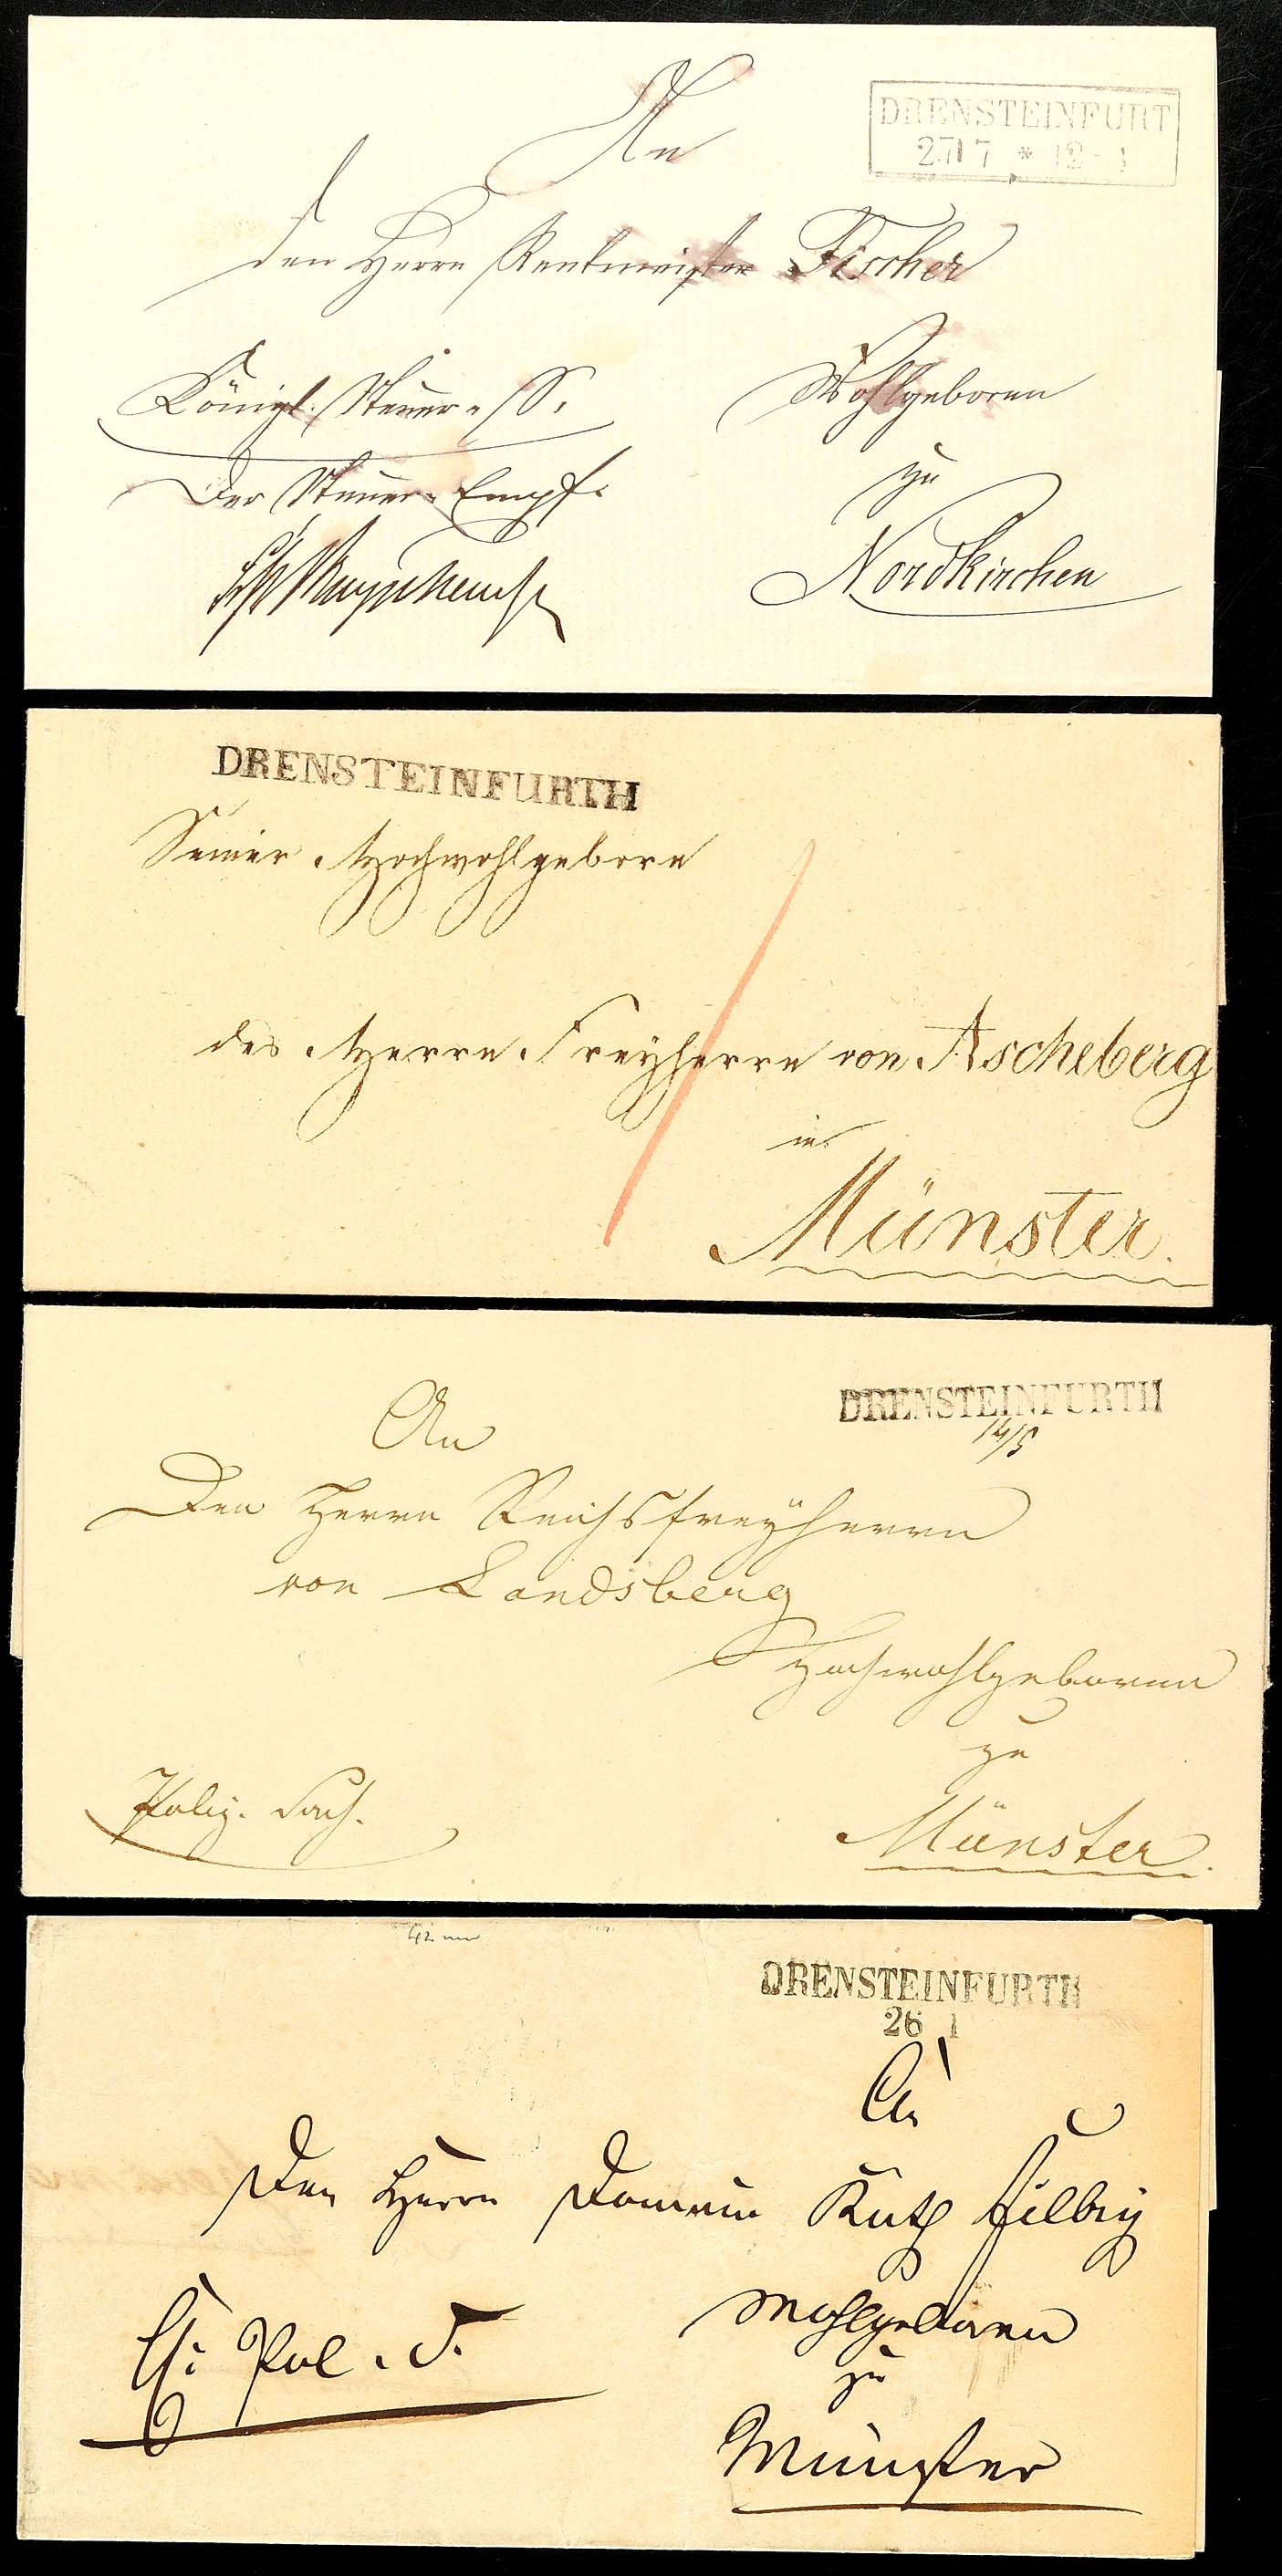 DRENSTEINFURT
27 7 * 12-1
An
den Herrn Rentmeister Fischer
Wohlgeboren
zu
Nordkirchen
Königl. Steuer-S.
Der Steuer-Empf.
DRENSTEINFURTH
Seiner Hochwohlgebore
des Herrn Freyherrn von Ascheberg
in
Münster.
DRENSTEINFURTH
14/5
An
Den Herrn Reichsfreyherrn
von Landsberg
Hochwohlgeboren
zu
Münster.
Poliz. Sach.
42 mm
DRENSTEINFURTH
26 1
An
Den Herrn Domain Rath
Wohlgeboren
zu
Münster
Pol. S.